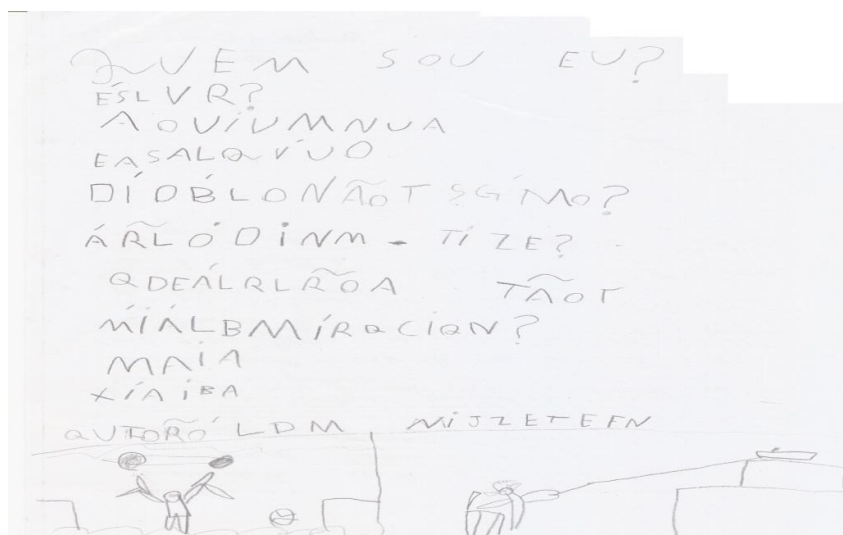 QUEM SOU EU?
ÉSLVR?
AOVÍVMNUA
EASALQVÚO
DÍOBLONÃOT SGÍMO?
ÁRLÓDINM - TÍZE?
QDEÁLRLÃOA TÃOT
MÍALBMÍRACIQN?
MAÍA
XÍAIBA
QUTORÓ LDM MIJZETEFN